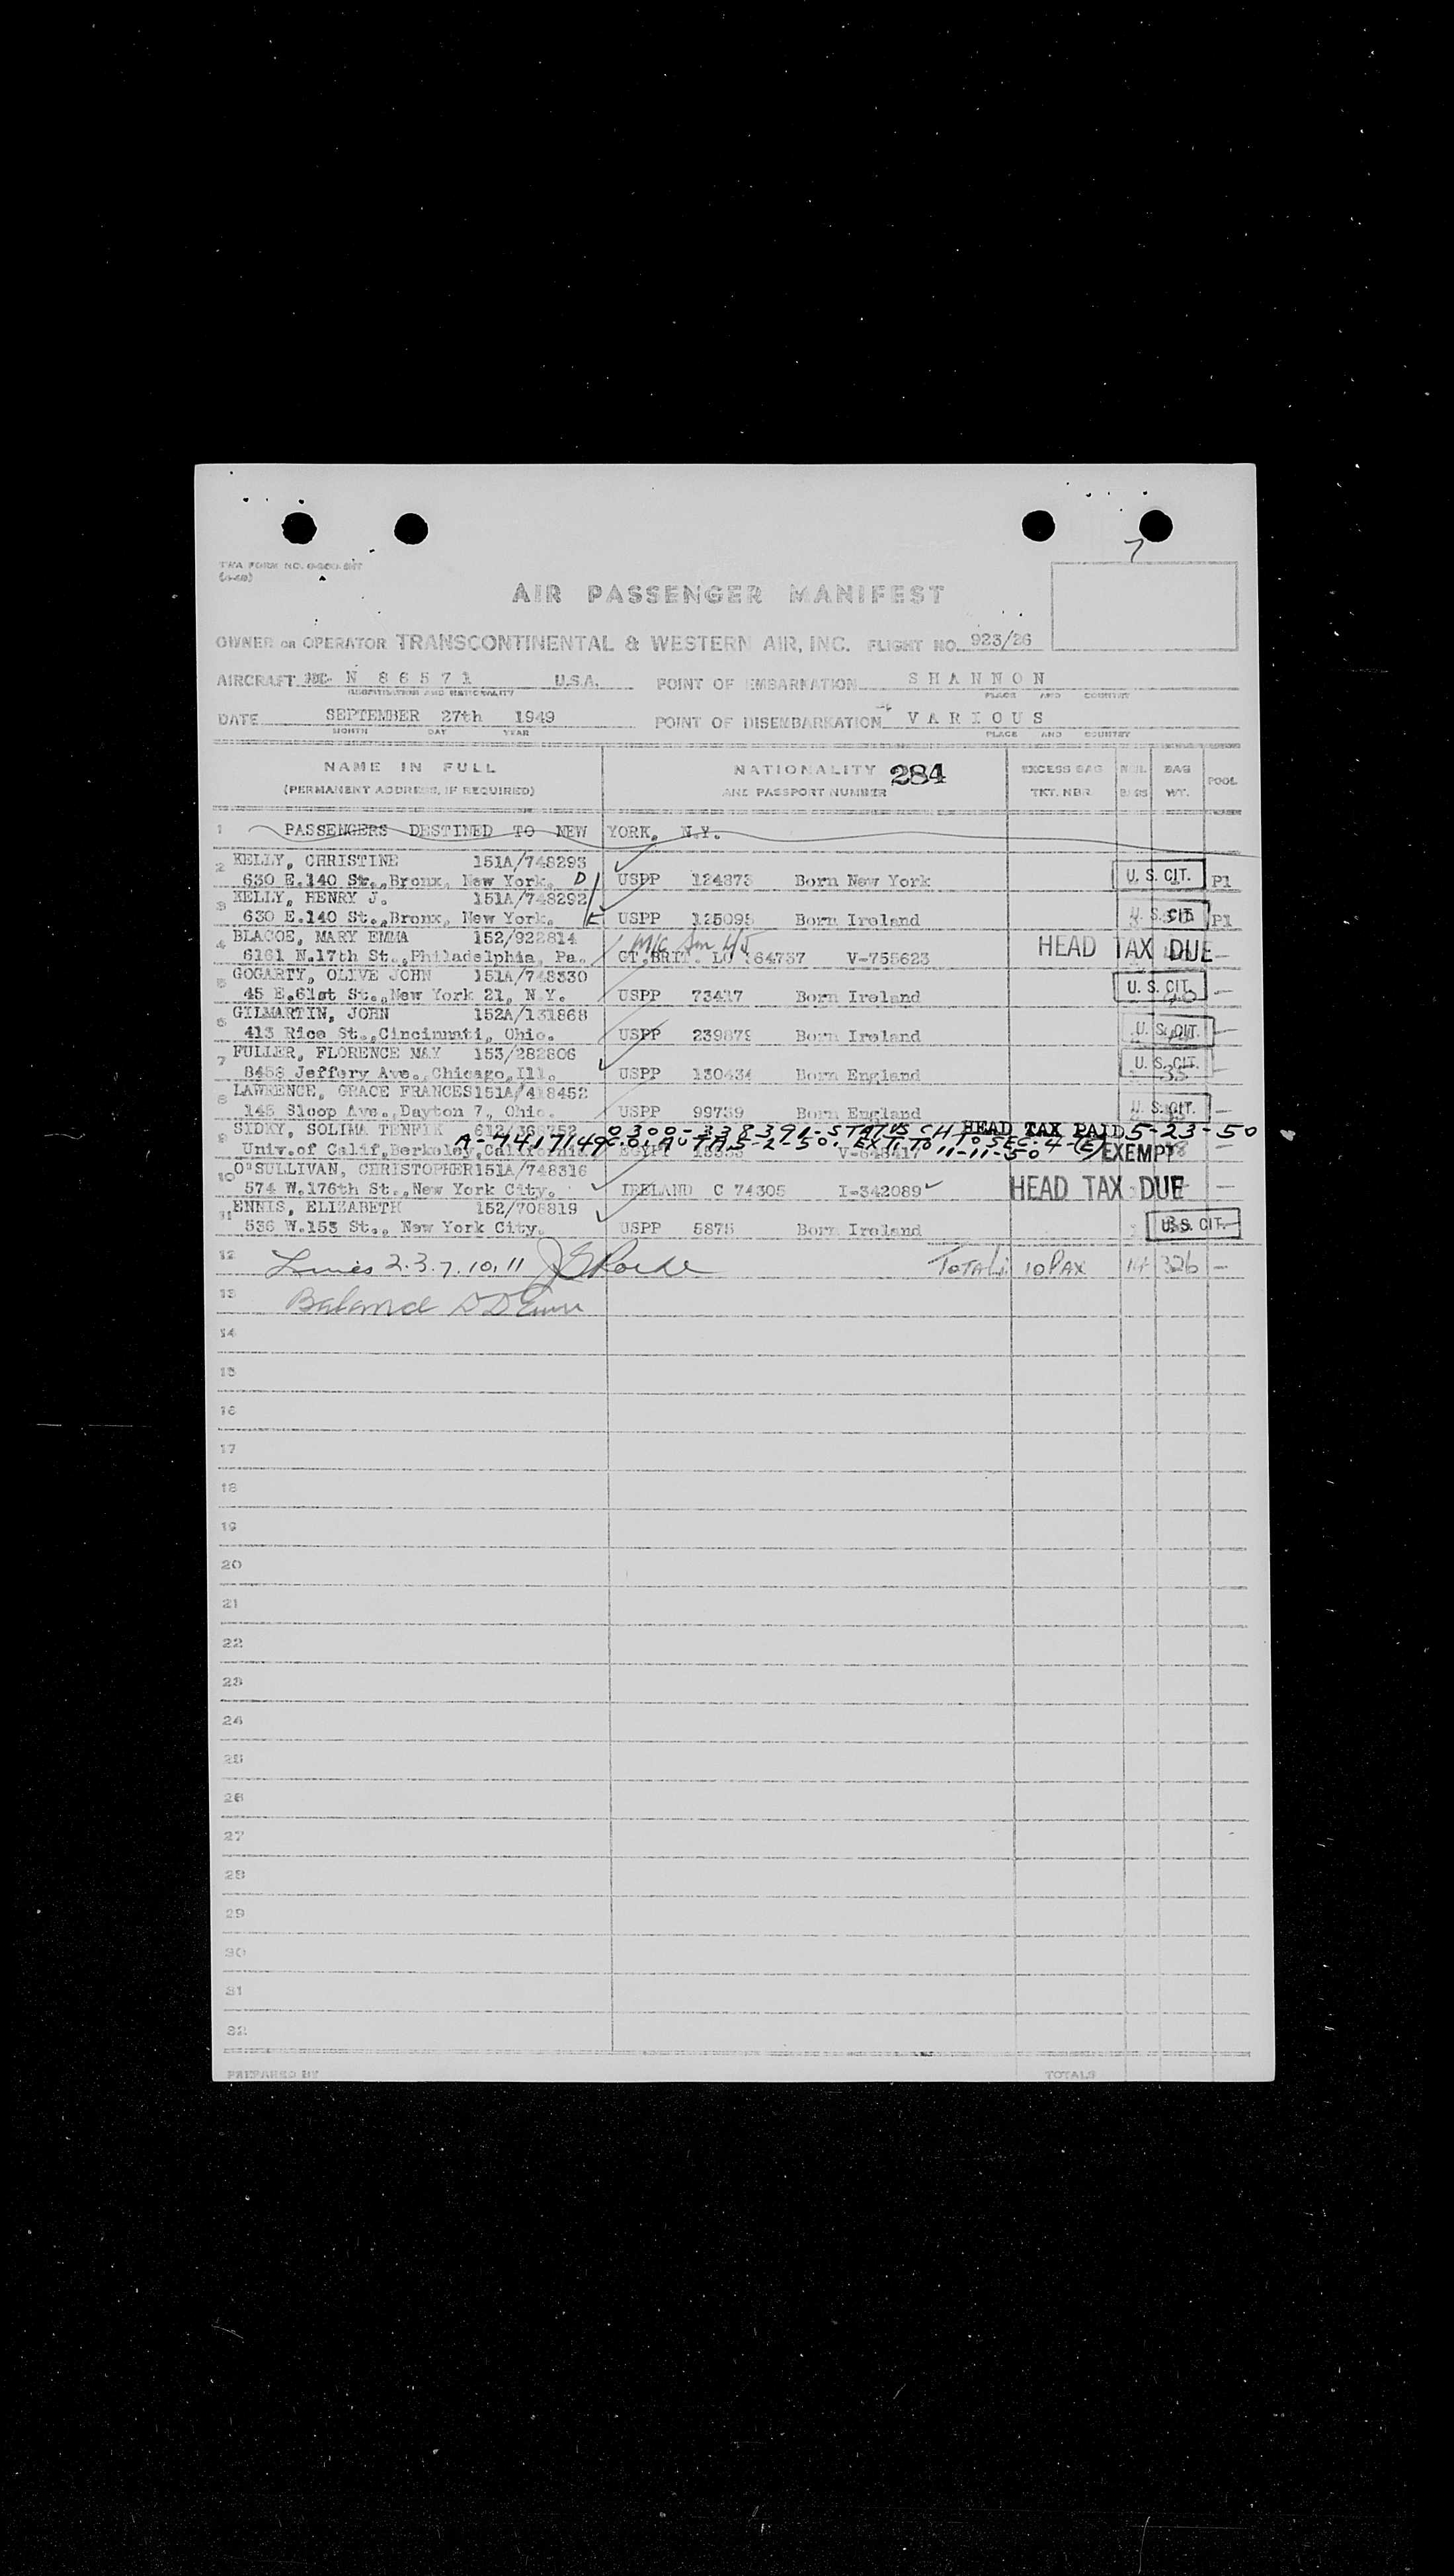 7
AIR PASSENGER MANIFEST
OWNER OR OPERATOR TRANSCONTINENTAL & WESTERN AIR, INC. FLIGHT NO. 923/26
AIRCRAFT N 86571 U.S.A. POINT OF EMBARKATION SHANNON
PLACE AND COUNTRY
DATE SEPTEMBER 27th 1949 POINT OF DISEMBARKATION VARIOUS
MONTH DAY YEAR PLACE AND COUNTRY
NAME IN FULL NATIONALITY 284 EXCESS BAG BAG
(PERMANENT ADDRESS, IF REQUIRED) AND PASSPORT NUMBER TKT. NBR. WT. POOL
1 PASSENGERS DESTINED TO NEW YORK, N.Y.
2 KELLY, CHRISTINE 151A/748293
630 E.140 St., Bronx, New York. D USPP 124873 Born New York U. S. CIT. P1
3 KELLY, HENRY J. 151A/748292
630 E.140 St., Bronx, New York. USPP 125095 Born Ireland U. S. CIT. P1
4 BLACOE, MARY EMMA 152/922814
6161 N.17th St., Philadelphia, Pa. GT.BRIT. 164737 V-755623 HEAD TAX DUE —
5 GOGARTY, OLIVE JOHN 151A/748330
45 E.61st St., New York 21, N.Y. USPP 73417 Born Ireland U. S. CIT. —
6 GILMARTIN, JOHN 152A/131868
413 Rice St., Cincinnati, Ohio. USPP 239879 Born Ireland U. S. CIT. —
7 FULLER, FLORENCE MAY 153/282806
8458 Jeffery Ave., Chicago, Ill. USPP 130434 Born England U. S. CIT. —
8 LAWRENCE, GRACE FRANCES 151A/418452
145 Sloop Ave., Dayton 7, Ohio. USPP 99739 Born England U. S. CIT. —
9 SIDKY, SOLIMA TENFIK 0300-338391-STATUS CH HEAD TAX PAID 5-23-50
A-7417149 C.O. AUTH 5-2-50. EXT. TO 11-11-50 TO SEC-4-(E) EXEMPT
Univ.of Calif, Berkeley, California EGYPT
10 O'SULLIVAN, CHRISTOPHER 151A/748316
574 W.176th St., New York City. IRELAND C 74305 I-342089 HEAD TAX DUE —
11 ENNIS, ELIZABETH 152/708819
536 W.153 St., New York City. USPP 5875 Born Ireland U.S. CIT.
12 Lines 2.3.7.10.11 TOTALS 10 PAX 14 326 —
13 Balance
14
15
16
17
18
19
20
21
22
23
24
25
26
27
28
29
30
31
32
PREPARED BY TOTALS